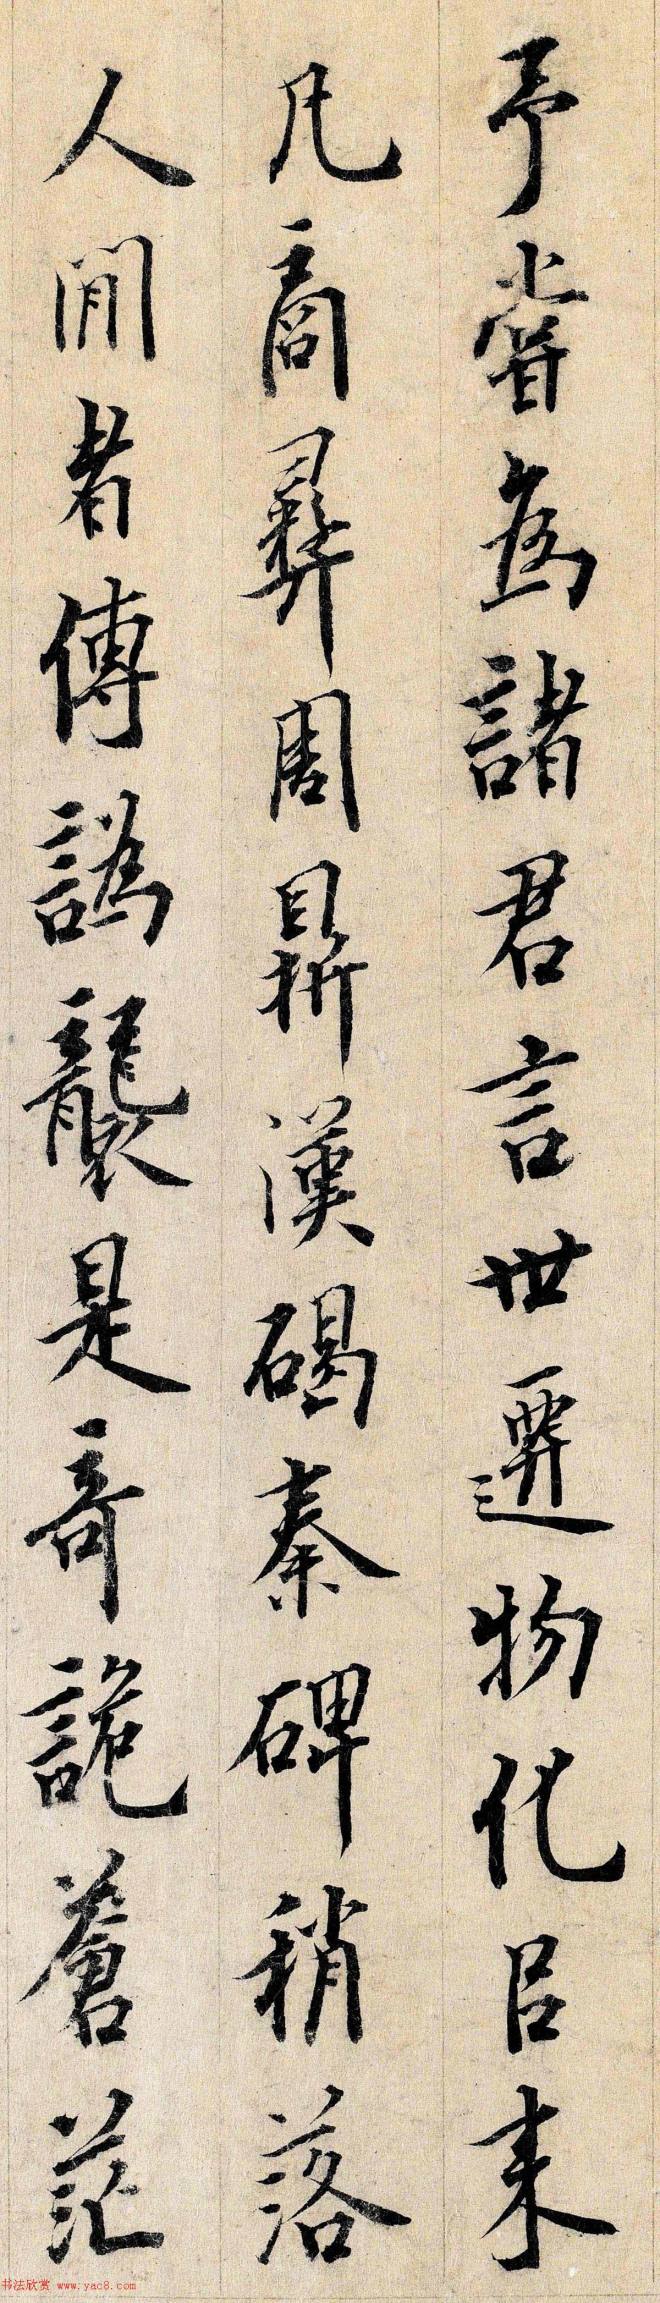 予嘗為諸君言世遷物化㠯来
凡商彝周鼎漢碣秦碑稍落
人間者傳譌襲是奇詭蒼茫
书法欣赏 www.yac8.com